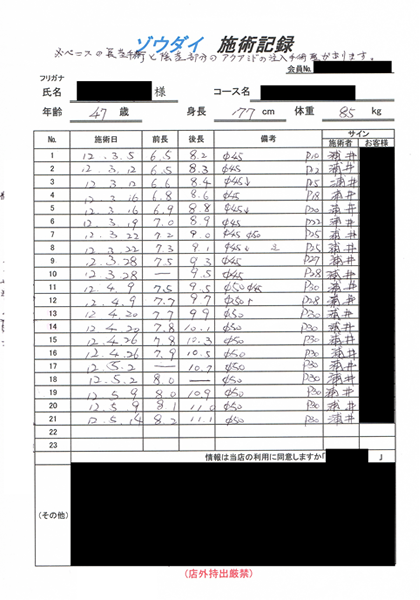 ゾウダイ 施術記録
※ペニスの長茎手術と陰茎部分のアクアミドの注入手術歴があります。
会員No.
フリガナ
氏名 様 コース名
年齢 47 歳 身長 177 cm 体重 85 kg
No. 施術日 前長 後長 備考 サイン
施術者 お客様
1 12.3.5 6.5 8.2 φ45 P10 浦井
2 12.3.12 6.5 8.3 φ45 浦井
3 12.3.12 6.6 8.4 φ45↓ 浦井
4 12.3.16 6.8 8.6 φ45 P18 浦井
5 12.3.16 6.9 8.8 φ45↓ P20 浦井
6 12.3.19 7.0 8.9 φ45 P22 浦井
7 12.3.22 7.2 9.0 φ45 φ50 P25 浦井
8 12.3.22 7.3 9.1 φ45↓ P25 浦井
9 12.3.28 7.5 9.3 φ45 P27 浦井
10 12.3.28 — 9.5 φ45 P28 浦井
11 12.4.9 7.5 9.5 φ50 φ45 P30 浦井
12 12.4.9 7.7 9.7 P28 浦井
13 12.4.20 7.7 9.9 φ50 P30 浦井
14 12.4.20 7.8 10.1 φ50 P30 浦井
15 12.4.26 7.8 10.3 φ50 P30 浦井
16 12.4.26 7.9 10.5 φ50 P30 浦井
17 12.5.2 — 10.7 φ50 P30 浦井
18 12.5.2 8.0 — φ50 P30 浦井
19 12.5.9 8.0 10.9 φ50 P30 浦井
20 12.5.9 8.1 11.0 φ50 P30 浦井
21 12.5.14 8.2 11.1 φ50 P30 浦井
22
23
情報は当店の利用に同意しますか「 」
(その他)
(店外持出厳禁)